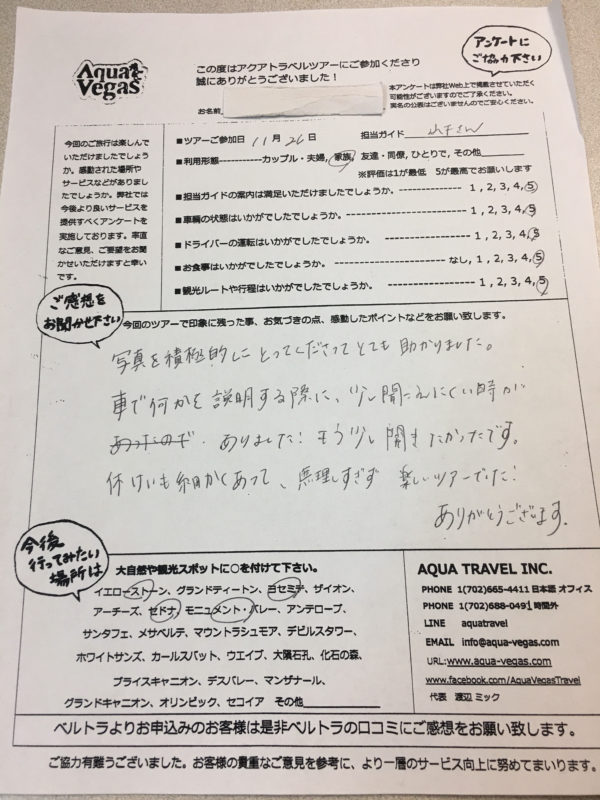 Aqua Vegas
この度はアクアトラベルツアーにご参加くださり
誠にありがとうございました!
アンケートに
ご協力下さい
本アンケートは弊社Web上で掲載させていただく
可能性がございますのでご了承ください。
実名の公表はございませんのでご安心ください。
お名前
今回のご旅行は楽しんで
いただけましたでしょう
か。感動された場所や
サービスなどがありまし
たでしょうか。弊社では
今後より良いサービスを
提供すべくアンケートを
実施しております。率直
なご意見、ご要望をお聞
かせいただけますと幸い
です。
■ツアーご参加日 11月 26日 担当ガイド 山下さん
■利用形態-----------カップル・夫婦, 家族, 友達・同僚, ひとりで, その他
※評価は1が最低 5が最高でお願いします
■担当ガイドの案内は満足いただけましたでしょうか。 --------------- 1, 2, 3, 4, 5
■車輌の状態はいかがでしたでしょうか。 --------------- 1, 2, 3, 4, 5
■ドライバーの運転はいかがでしたでしょうか。 --------------- 1, 2, 3, 4, 5
■お食事はいかがでしたでしょうか。 --------------- なし, 1, 2, 3, 4, 5
■観光ルートや行程はいかがでしたでしょうか。 --------------- 1, 2, 3, 4, 5
ご感想を
お聞かせ下さい
今回のツアーで印象に残った事、お気づきの点、感動したポイントなどをお願い致します。
写真を積極的にとってくださってとても助かりました。
車で何かを説明する際に、少し聞こえにくい時が
あったので、ありました! もう少し聞きたかったです。
休けいも細かくあって、無理しすぎず 楽しいツアーでした!
ありがとうございます。
今後
行ってみたい
場所は
大自然や観光スポットに○を付けて下さい。
イエローストーン、グランドティートン、ヨセミテ、ザイオン、
アーチーズ、セドナ、モニュメント・バレー、アンテロープ、
サンタフェ、メサベルテ、マウントラシュモア、デビルスタワー、
ホワイトサンズ、カールスバット、ウエイブ、大隕石孔、化石の森、
ブライスキャニオン、デスバレー、マンザナール、
グランドキャニオン、オリンピック、セコイア その他
AQUA TRAVEL INC.
PHONE 1(702)665-4411 日本語 オフィス
PHONE 1(702)688-0491 時間外
LINE aquatravel
EMAIL info@aqua-vegas.com
URL:www.aqua-vegas.com
www.facebook.com/AquaVegasTravel
代表 渡辺 ミック
ベルトラよりお申込みのお客様は是非ベルトラの口コミにご感想をお願い致します。
ご協力有難うございました。お客様の貴重なご意見を参考に、より一層のサービス向上に努めてまいります。